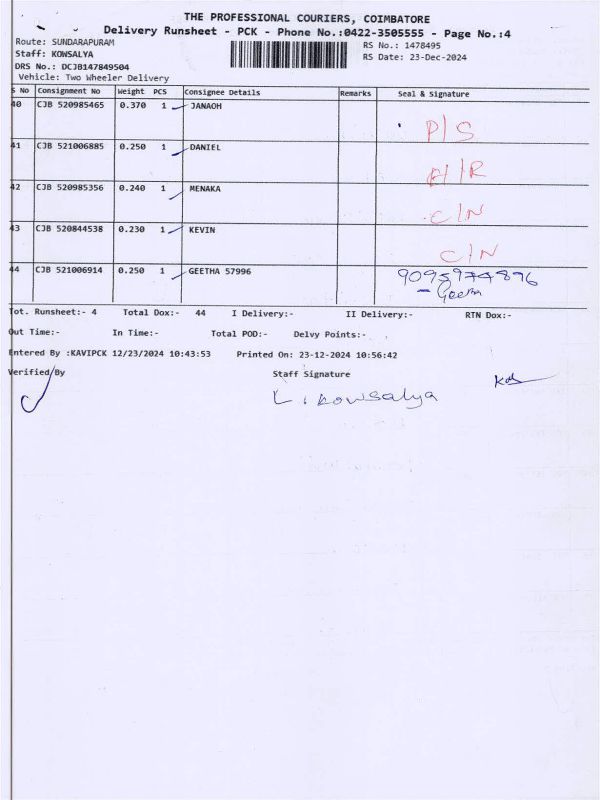 THE PROFESSIONAL COURIERS, COIMBATORE
Delivery Runsheet - PCK - Phone No.:0422-3505555 - Page No.:4
Route: SUNDARAPURAM RS No.: 1478495
Staff: KOWSALYA RS Date: 23-Dec-2024
DRS No.: DCJB147849504
Vehicle: Two Wheeler Delivery
S No Consignment No Weight PCS Consignee Details Remarks Seal & Signature
40 CJB 520985465 0.370 1 JANAOH
P/S
41 CJB 521006885 0.250 1 DANIEL
42 CJB 520985356 0.240 1 MENAKA
C/N
43 CJB 520844538 0.230 1 KEVIN
C/N
44 CJB 521006914 0.250 1 GEETHA 57996
9095974896
Geetha
Tot. Runsheet:- 4 Total Dox:- 44 I Delivery:- II Delivery:- RTN Dox:-
Out Time:- In Time:- Total POD:- Delvy Points:-
Entered By :KAVIPCK 12/23/2024 10:43:53 Printed On: 23-12-2024 10:56:42
Verified By Staff Signature
L. Kowsalya